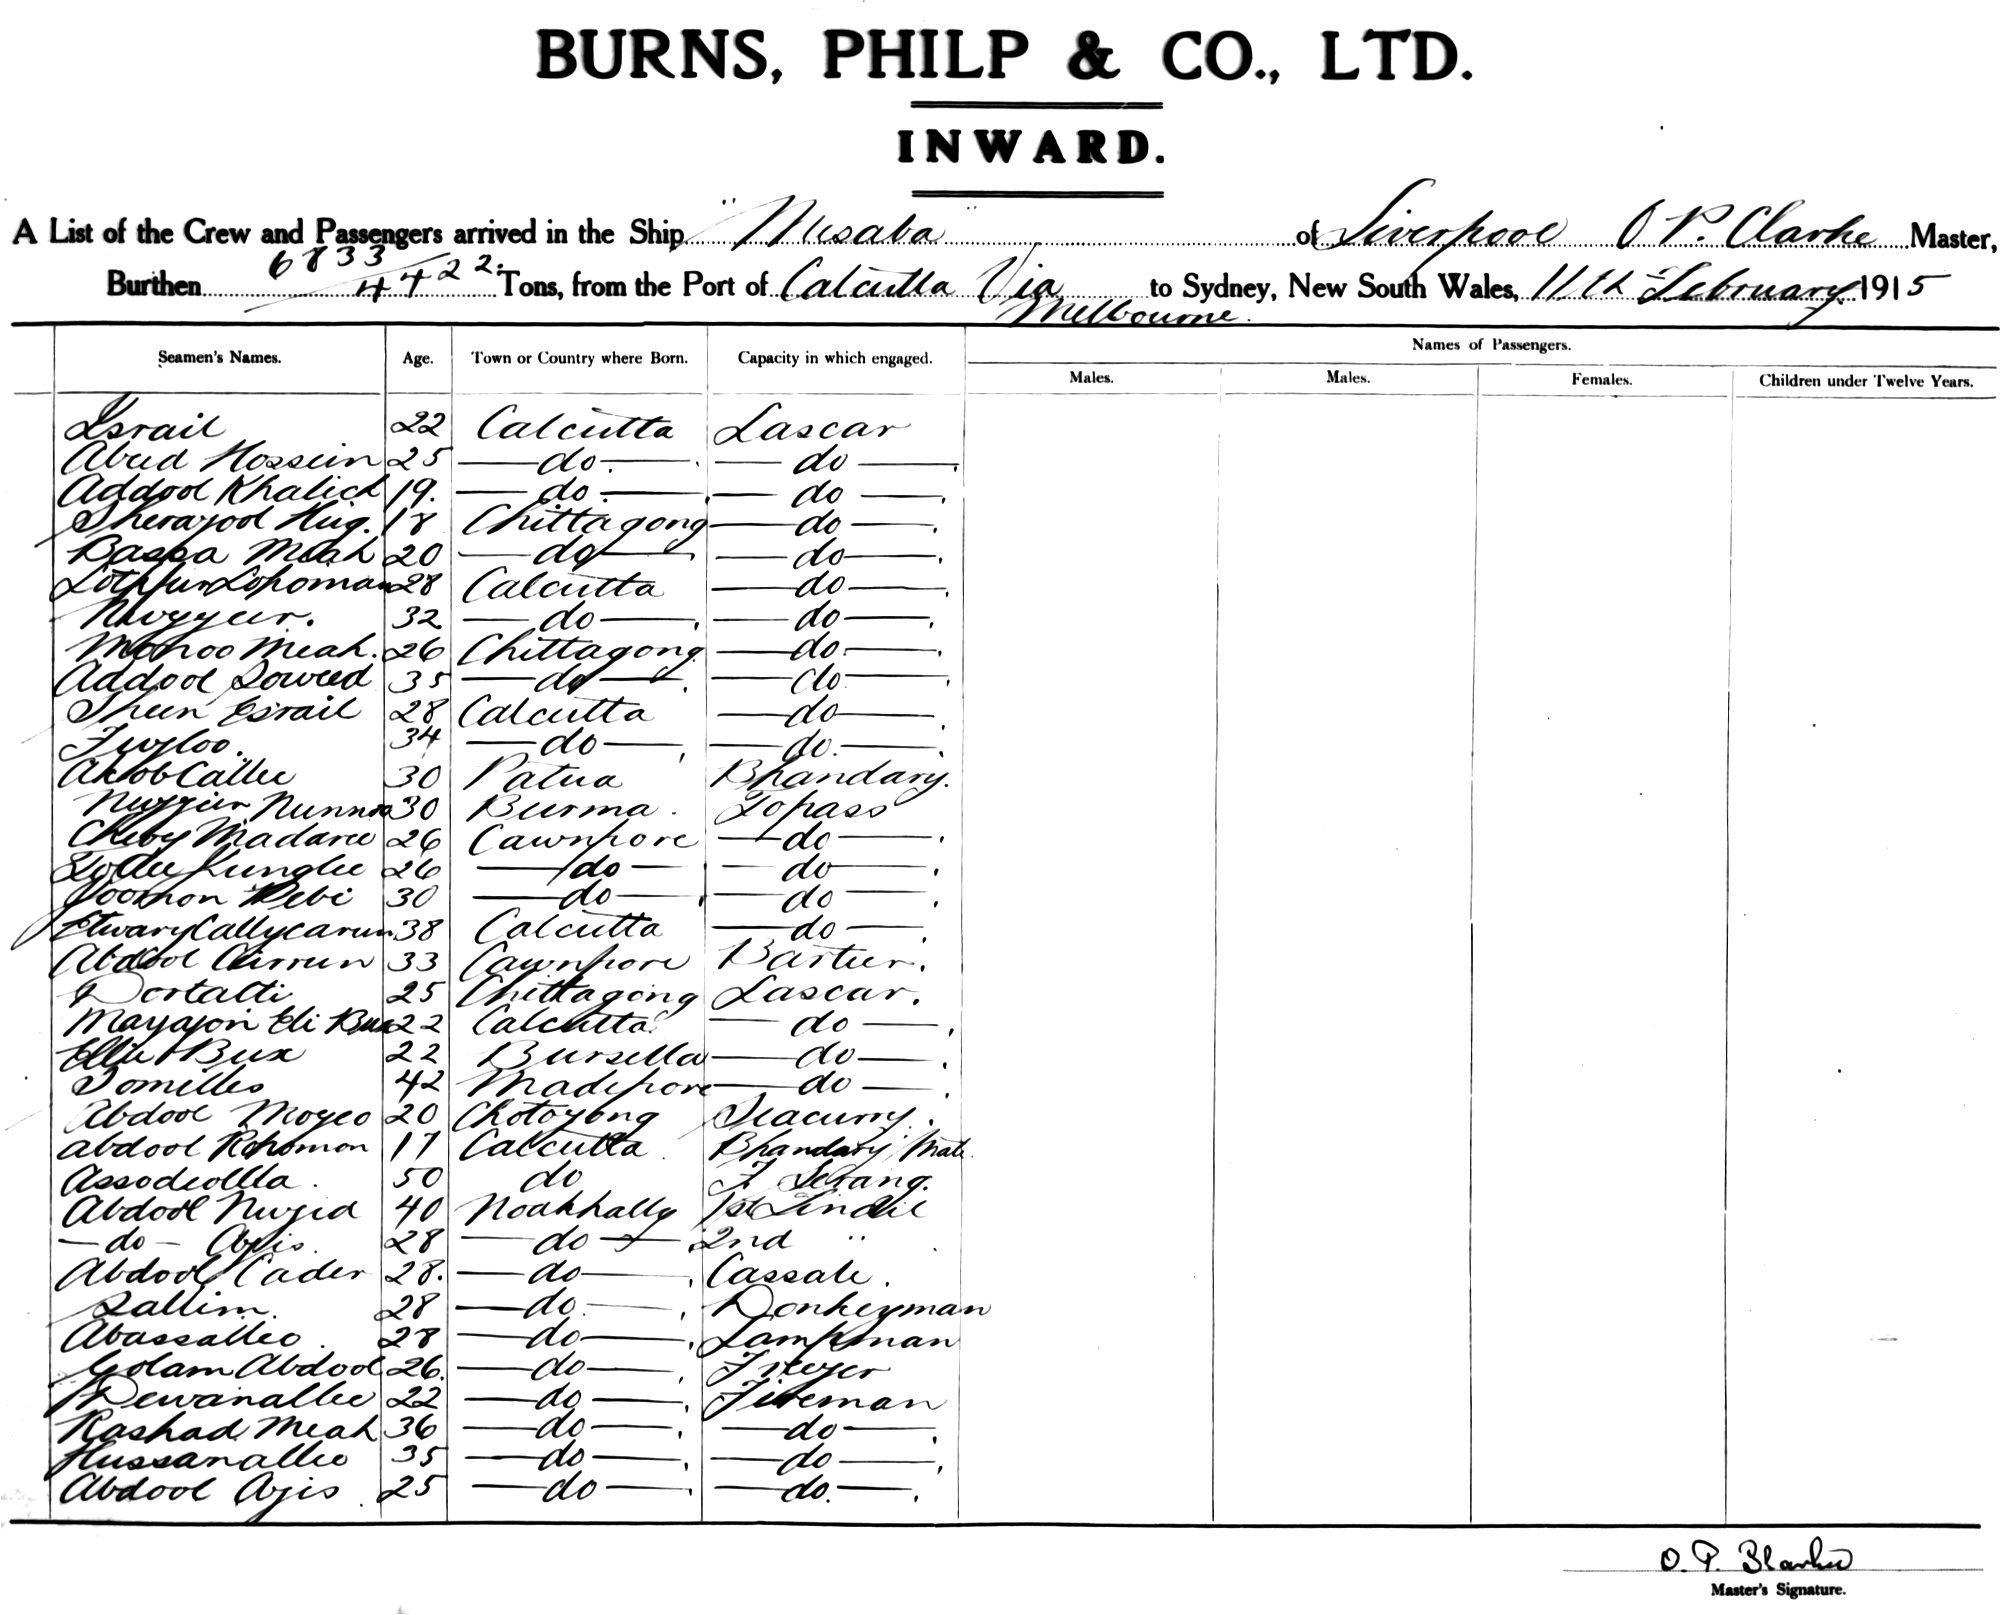 BURNS, PHILP & CO., LTD.
INWARD.
A List of the Crew and Passengers arrived in the Ship "Mesaba" of Liverpool O P. Clarke Master,
Burthen 6833 / 4422. Tons, from the Port of Calcutta Via Melbourne. to Sydney, New South Wales, 11th February 1915
Seamen's Names. Age. Town or Country where Born. Capacity in which engaged. Names of Passengers.
Males. Males. Females. Children under Twelve Years.
Israil 22 Calcutta Lascar
Abud Hossein 25 — do — — do —
Addool Khalick 19. — do — — do —
Sherajool Hug. 18 Chittagong — do —
Bassa Meah 20 — do — — do —
28 Calcutta — do —
32 — do — — do —
Monoo Meah. 26 Chittagong — do —
Addool Soweed 35 — do — — do —
Sheen Esrail 28 Calcutta — do —
Fuzloo. 34 — do — — do. —
Akob Callee 30 Patua Bhandary.
Nunnoo 30 Burma. Topass
Cheby Madaree 26 Cawnpore — do —
Junglee 26 — do — — do —
Joomon Debi 30 — do — — do —
Etwary Callycarun 38 Calcutta — do —
Abdool Currun 33 Cawnpore Bartier.
Dortalli 25 Chittagong Lascar.
Mayajon Eli Bux 22 Calcutta — do —
Ellie Bux 22 Bursella — do —
Tomilles 42 Madepore — do —
Abdool Moyeo 20 Chotoyong Seacurry.
abdool Rohomon 17 Calcutta Bhandary Mate.
Assodeollla. 50 do F Serang.
Abdool Nujid 40 Noakhally 1st Tindle
— do — Ajis. 28 — do — 2nd "
Abdool Cader 28. — do — Cassale.
Sallim. 28 — do — Donkeyman
Abassalleo. 28 — do — Lampman
Golam Abdool 26. — do — Fireman
Dewanallee 22 — do — Fireman
Rashad Meah 36 — do — — do —
Hussanalleo 35 — do — — do —
Abdool Ajis. 25 — do — — do. —
O. P. Clarke
Master's Signature.